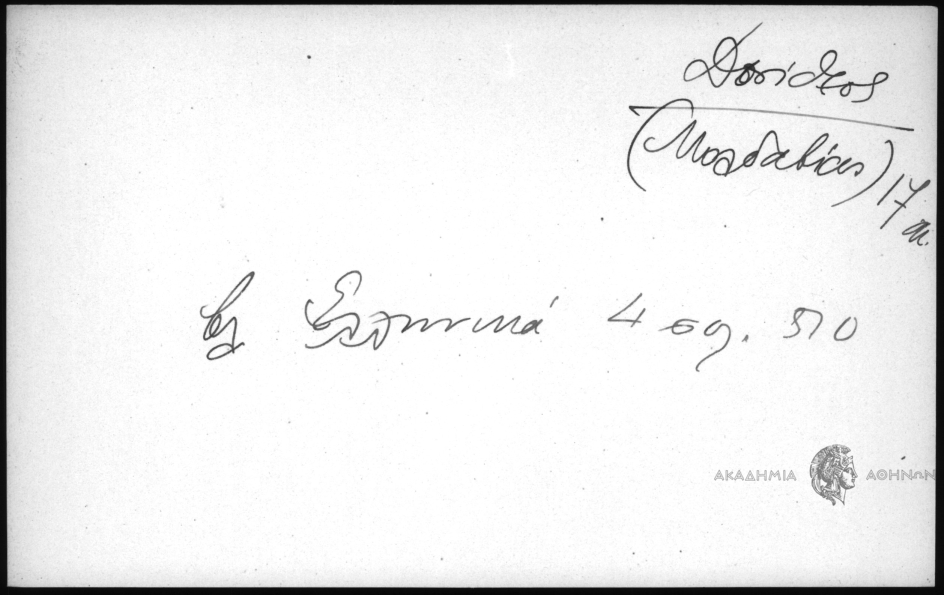 Δοσίθεος
(Μολδαβίας) 17 αι.
βλ Ελληνικά 4 σελ. 510
ΑΚΑΔΗΜΙΑ ΑΘΗΝΩΝ